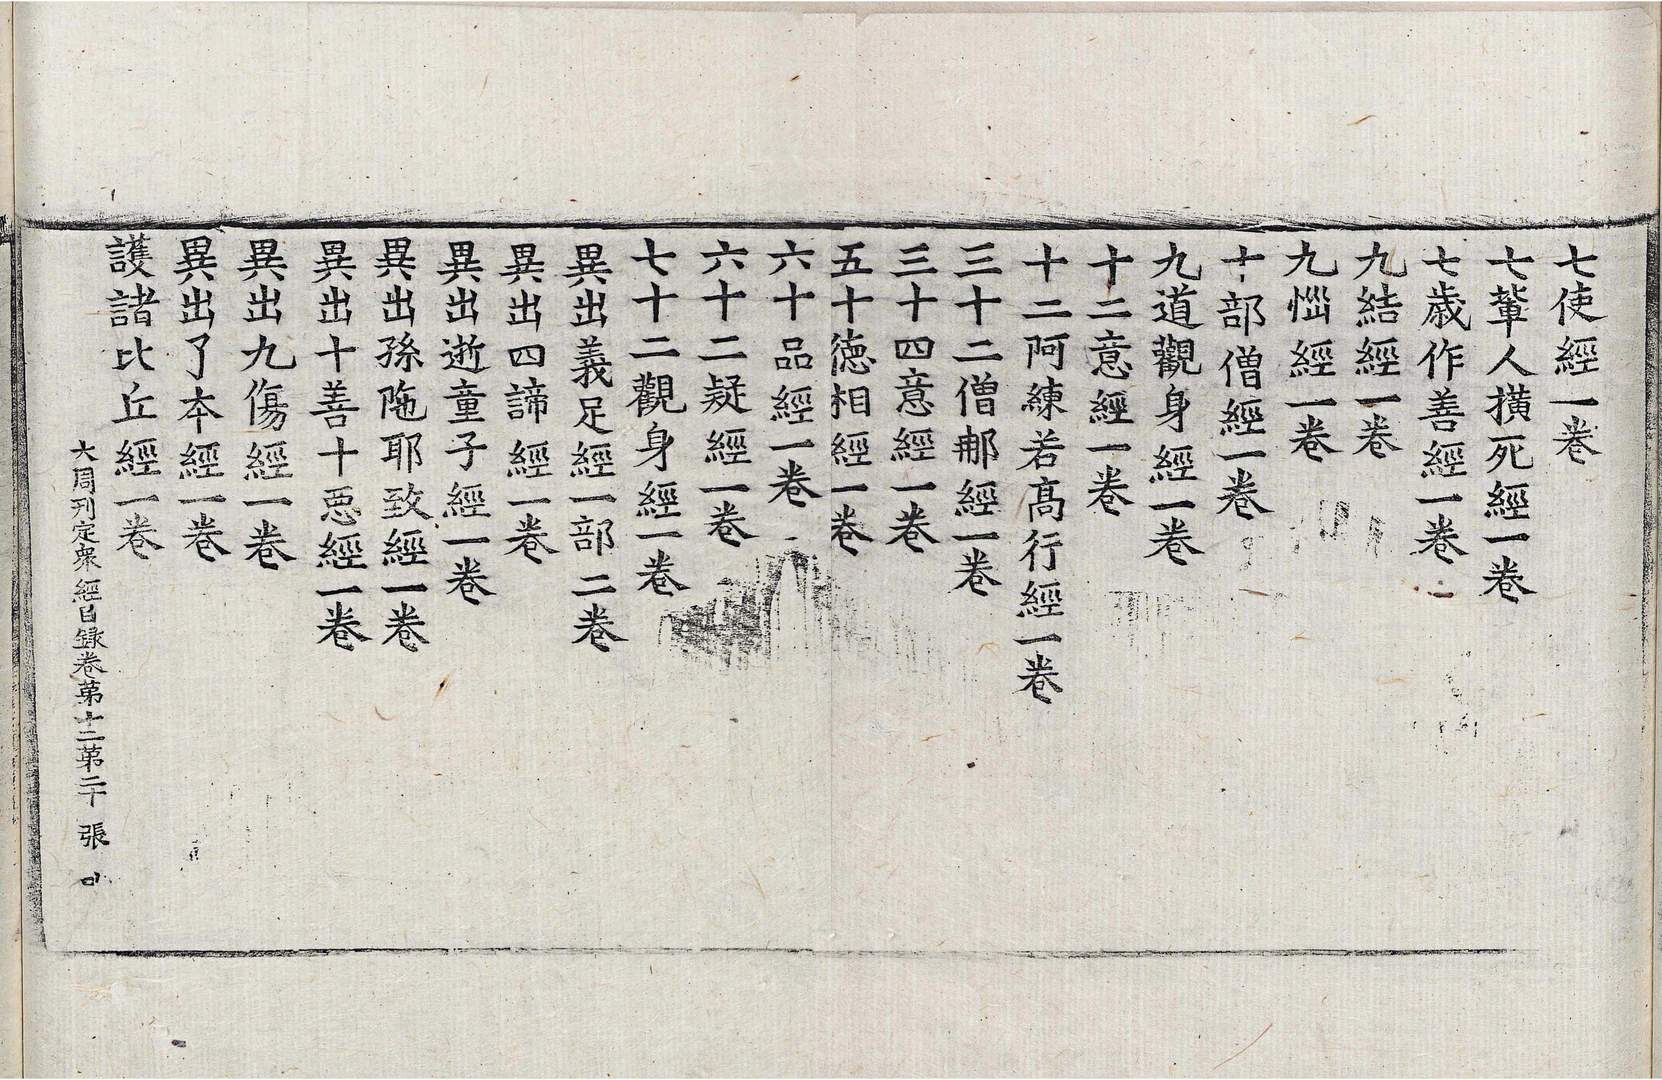 七使經一卷
七輩人撗死經一卷
七歳作善經一卷
九結經一卷
九惱經一卷
十部僧經一卷
九道觀身經一卷
十二意經一卷
十二阿練若髙行經一卷
三十二僧那經一卷
三十四意經一卷
五十徳相經一卷
六十品經一卷
六十二疑經一卷
七十二觀身經一卷
異出義足經一部二卷
異出四諦經一卷
異出逝童子經一卷
異出孫陁耶致經一卷
異出十善十惡經一卷
異出九傷經一卷
異出了夲經一卷
護諸比丘經一卷
大周刊定衆經目録卷第十二第二十張